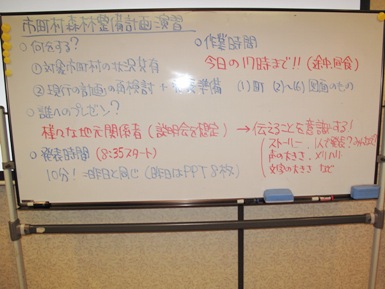 市町村森林整備計画演習
○何をする?
①対象市町村の状況共有
②現行の計画の再検討 + 発表準備
○誰へのプレゼン?
様々な地元関係者 (説明会を想定)
○発表時間 (8:35スタート)
10分! =昨日と同じ (昨日はPPT 8枚)
○作業時間
今日の17時まで!! (途中回食)
(1)町 (2)~(6)
→伝えることを意識する!
ストーリー、1人で発表?みんなで?
声の大きさ、メリハリ
文字の大きさ など